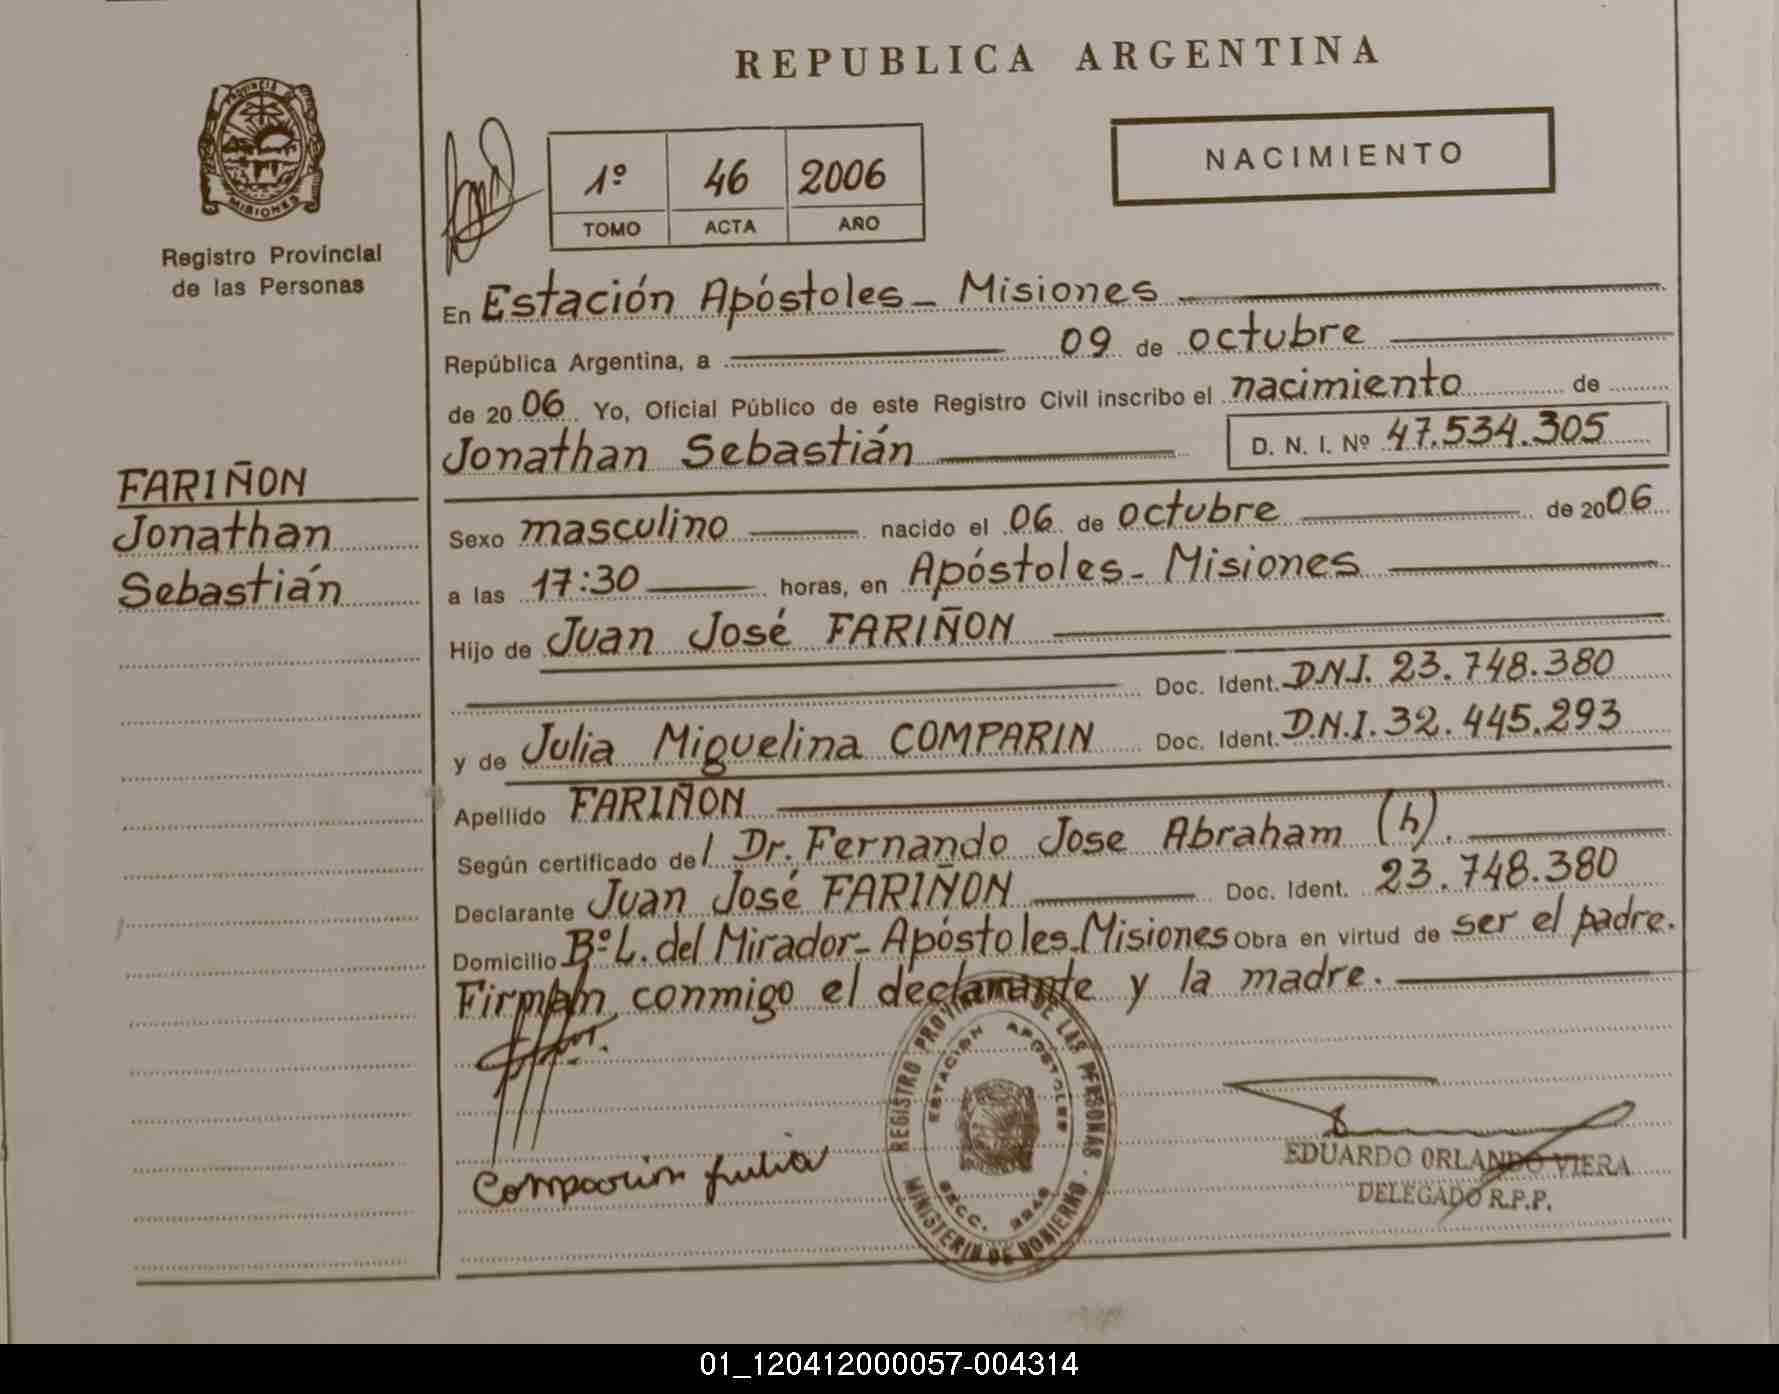 REPUBLICA ARGENTINA
PROVINCIA DE
MISIONES
Registro Provincial
de las Personas
1º 46 2006
TOMO ACTA AÑO
NACIMIENTO
En Estación Apóstoles - Misiones
República Argentina, a 09 de octubre
de 2006 Yo, Oficial Público de este Registro Civil inscribo el nacimiento de
Jonathan Sebastián D. N. I. Nº 47.534.305
FARIÑON
Jonathan
Sebastián
Sexo masculino nacido el 06 de octubre de 2006
a las 17:30 horas, en Apóstoles - Misiones
Hijo de Juan José FARIÑON
Doc. Ident. D.N.I. 23.748.380
y de Julia Miguelina COMPARIN Doc. Ident. D.N.I. 32.445.293
Apellido FARIÑON
Según certificado del Dr. Fernando Jose Abraham (h).
Declarante Juan José FARIÑON Doc. Ident. 23.748.380
Domicilio Bº L. del Mirador - Apóstoles - Misiones Obra en virtud de ser el padre.
Firman conmigo el declarante y la madre.
REGISTRO PROVINCIAL DE LAS PERSONAS
ESTACION APOSTOLES
SECC.
MINISTERIO DE GOBIERNO
Comparin Julia
EDUARDO ORLANDO VIERA
DELEGADO R.P.P.
01_120412000057-004314